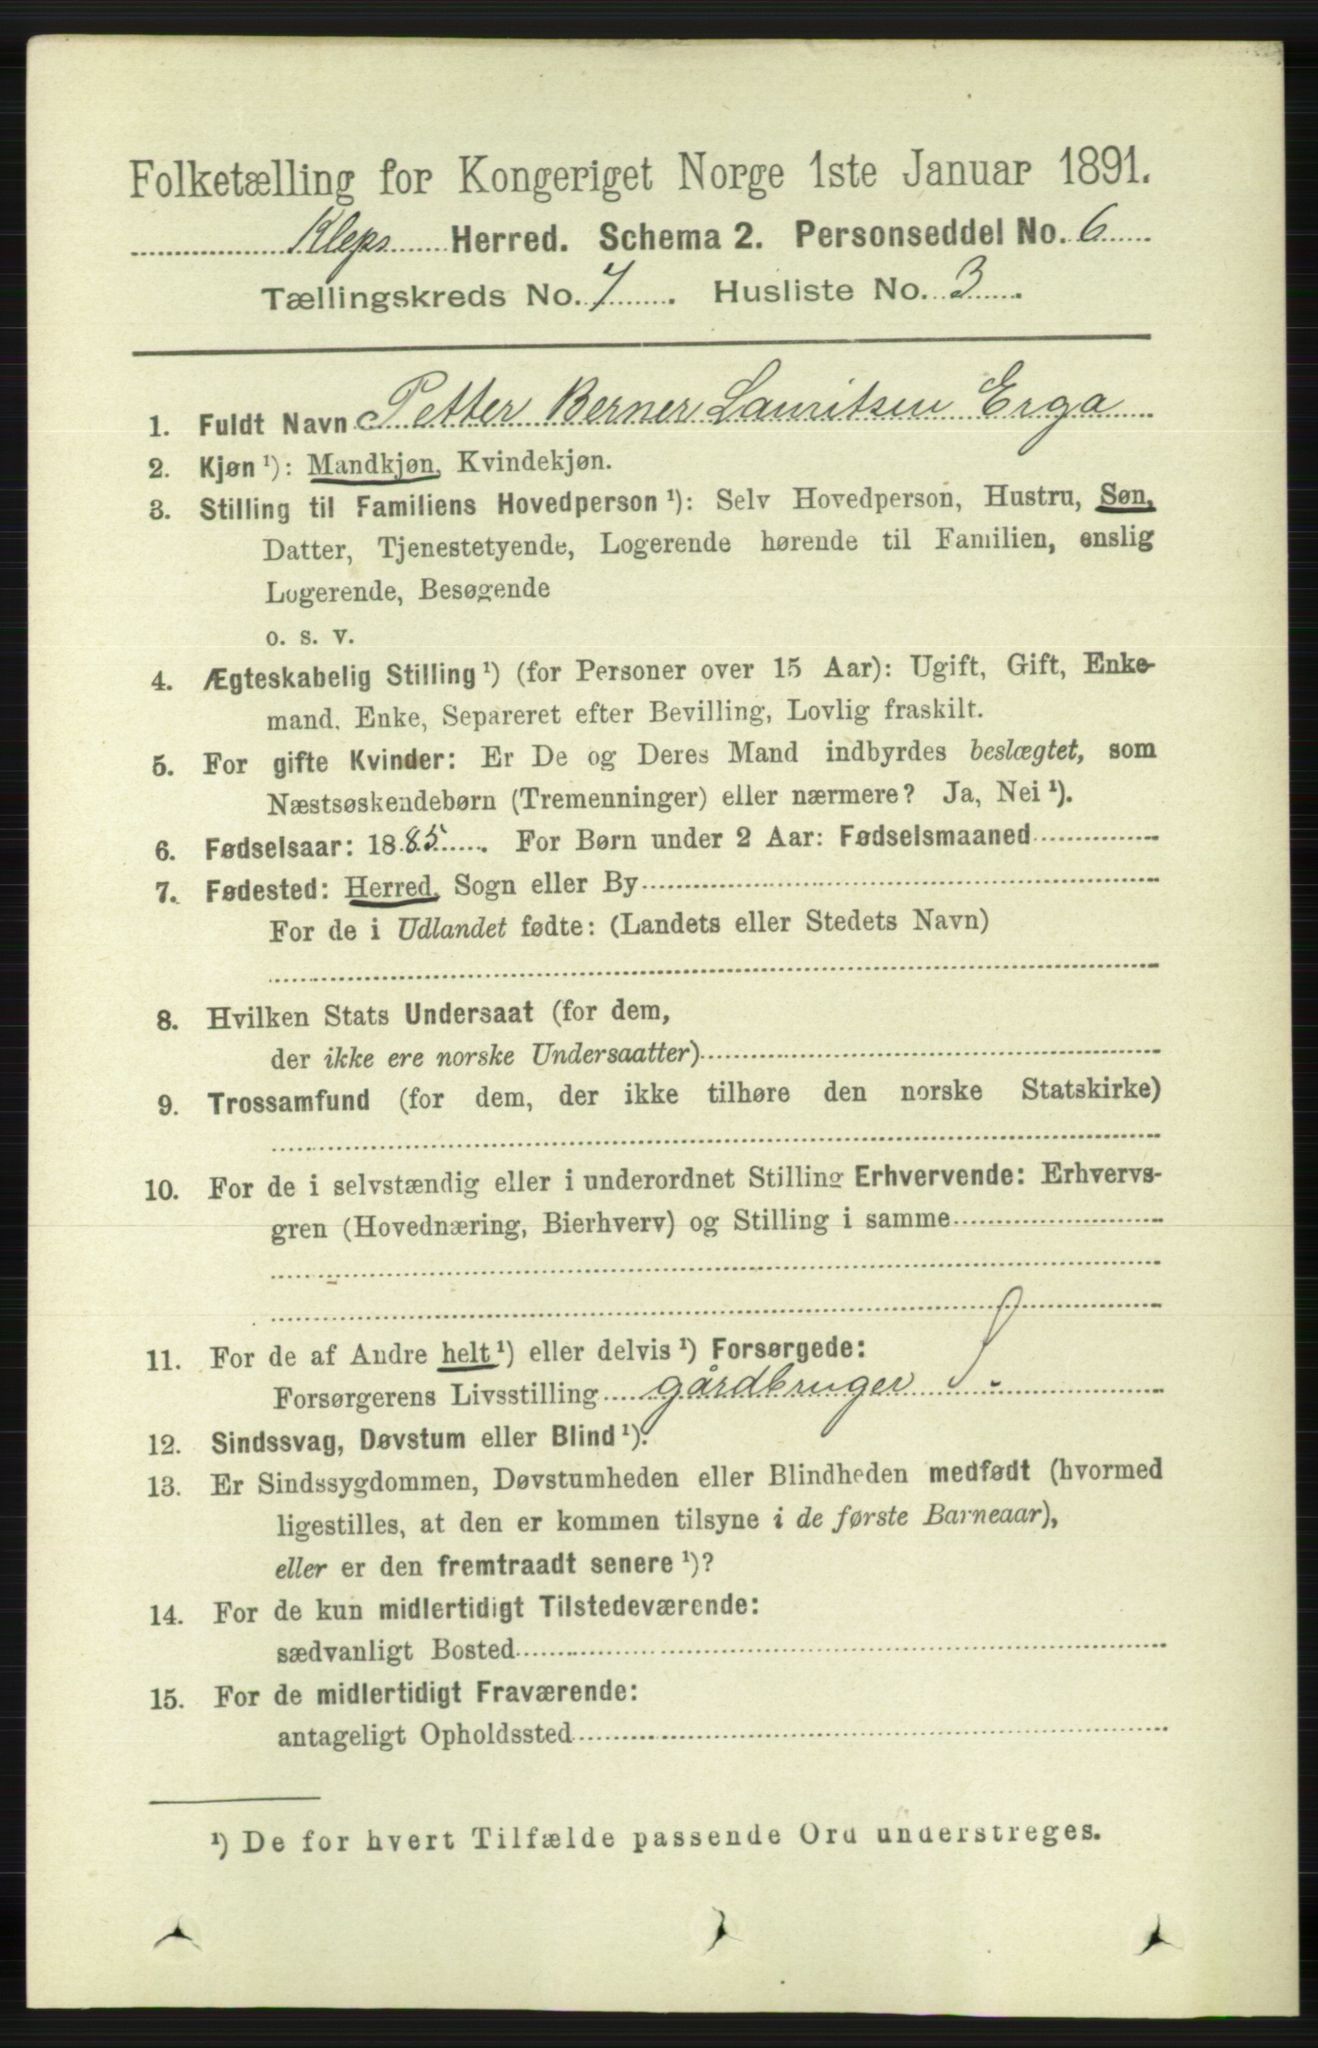 Folketælling for Kongeriget Norge 1ste Januar 1891.
Kleps Herred. Schema 2. Personseddel No. 6
Tællingskreds No. 7. Husliste No. 3.
1. Fuldt Navn Petter Berner Lauritsen Erga
2. Kjøn ¹): Mandkjøn, Kvindekjøn.
3. Stilling til Familiens Hovedperson ¹): Selv Hovedperson, Hustru, Søn,
Datter, Tjenestetyende, Logerende hørende til Familien, enslig
Logerende, Besøgende
o. s. v.
4. Ægteskabelig Stilling ¹) (for Personer over 15 Aar): Ugift, Gift, Enke-
mand, Enke, Separeret efter Bevilling, Lovlig fraskilt.
5. For gifte Kvinder: Er De og Deres Mand indbyrdes beslægtet, som
Næstsøskendebørn (Tremenninger) eller nærmere? Ja, Nei ¹).
6. Fødselsaar: 1885. For Børn under 2 Aar: Fødselsmaaned
7. Fødested: Herred, Sogn eller By
For de i Udlandet fødte: (Landets eller Stedets Navn)
8. Hvilken Stats Undersaat (for dem,
der ikke ere norske Undersaatter)
9. Trossamfund (for dem, der ikke tilhøre den norske Statskirke)
10. For de i selvstændig eller i underordnet Stilling Erhvervende: Erhvervs-
gren (Hovednæring, Bierhverv) og Stilling i samme
11. For de af Andre helt ¹) eller delvis ¹) Forsørgede:
Forsørgerens Livsstilling gårdbruger
12. Sindssvag, Døvstum eller Blind ¹).
13. Er Sindssygdommen, Døvstumheden eller Blindheden medfødt (hvormed
ligestilles, at den er kommen tilsyne i de første Barneaar),
eller er den fremtraadt senere ¹)?
14. For de kun midlertidigt Tilstedeværende:
sædvanligt Bosted
15. For de midlertidigt Fraværende:
antageligt Opholdssted
¹) De for hvert Tilfælde passende Ord understreges.